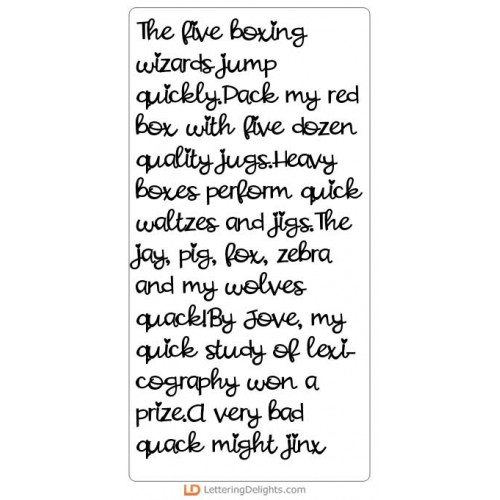 The five boxing
wizards jump
quickly.Pack my red
box with five dozen
quality jugs.Heavy
boxes perform quick
waltzes and jigs.The
jay, pig, fox, zebra
and my wolves
quack!By Jove, my
quick study of lexi-
cography won a
prize.A very bad
quack might jinx
LD LetteringDelights.com